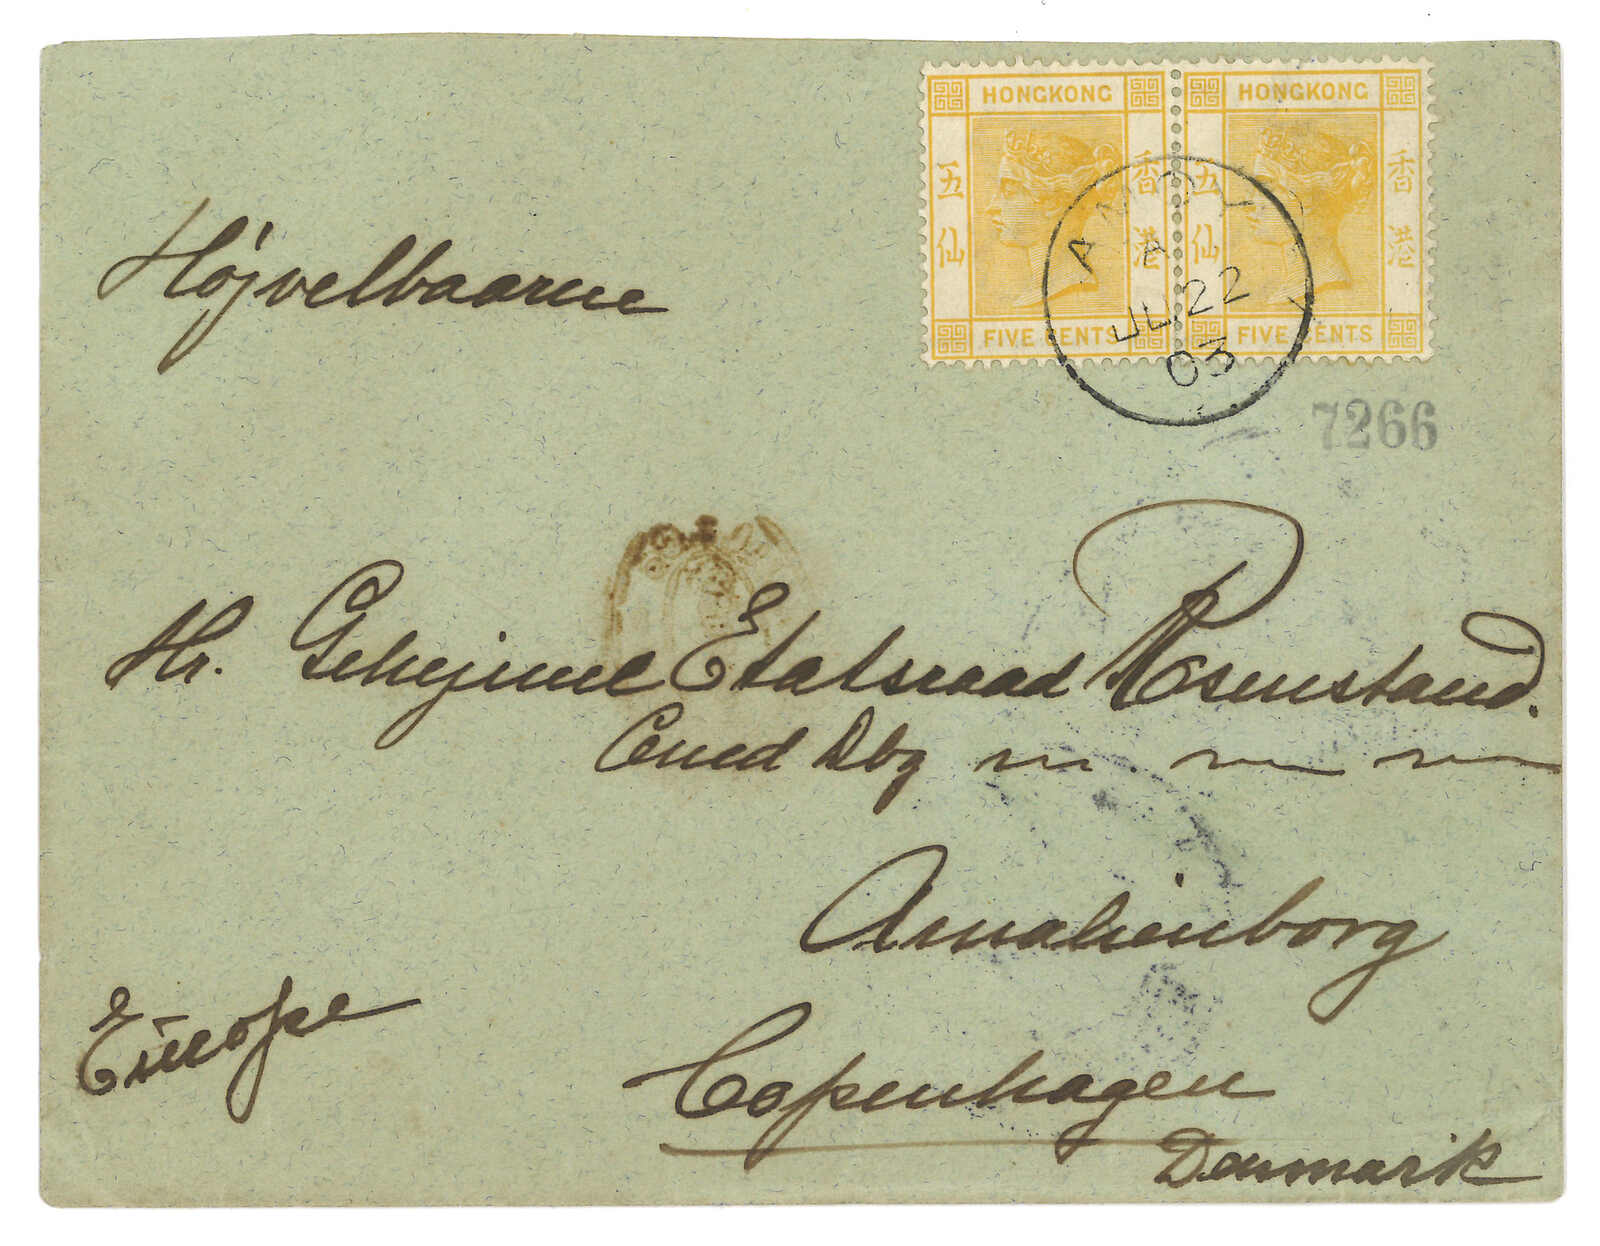 HONGKONG HONGKONG
五仙 香港 五仙 香港
FIVE CENTS FIVE CENTS
AMOY
A
JU 22
03
7266
Højvelbaarne
Hr. Gehejme Etatsraad Rosenstand.
Dbg
Amalienborg
Europe
Copenhagen
Denmark